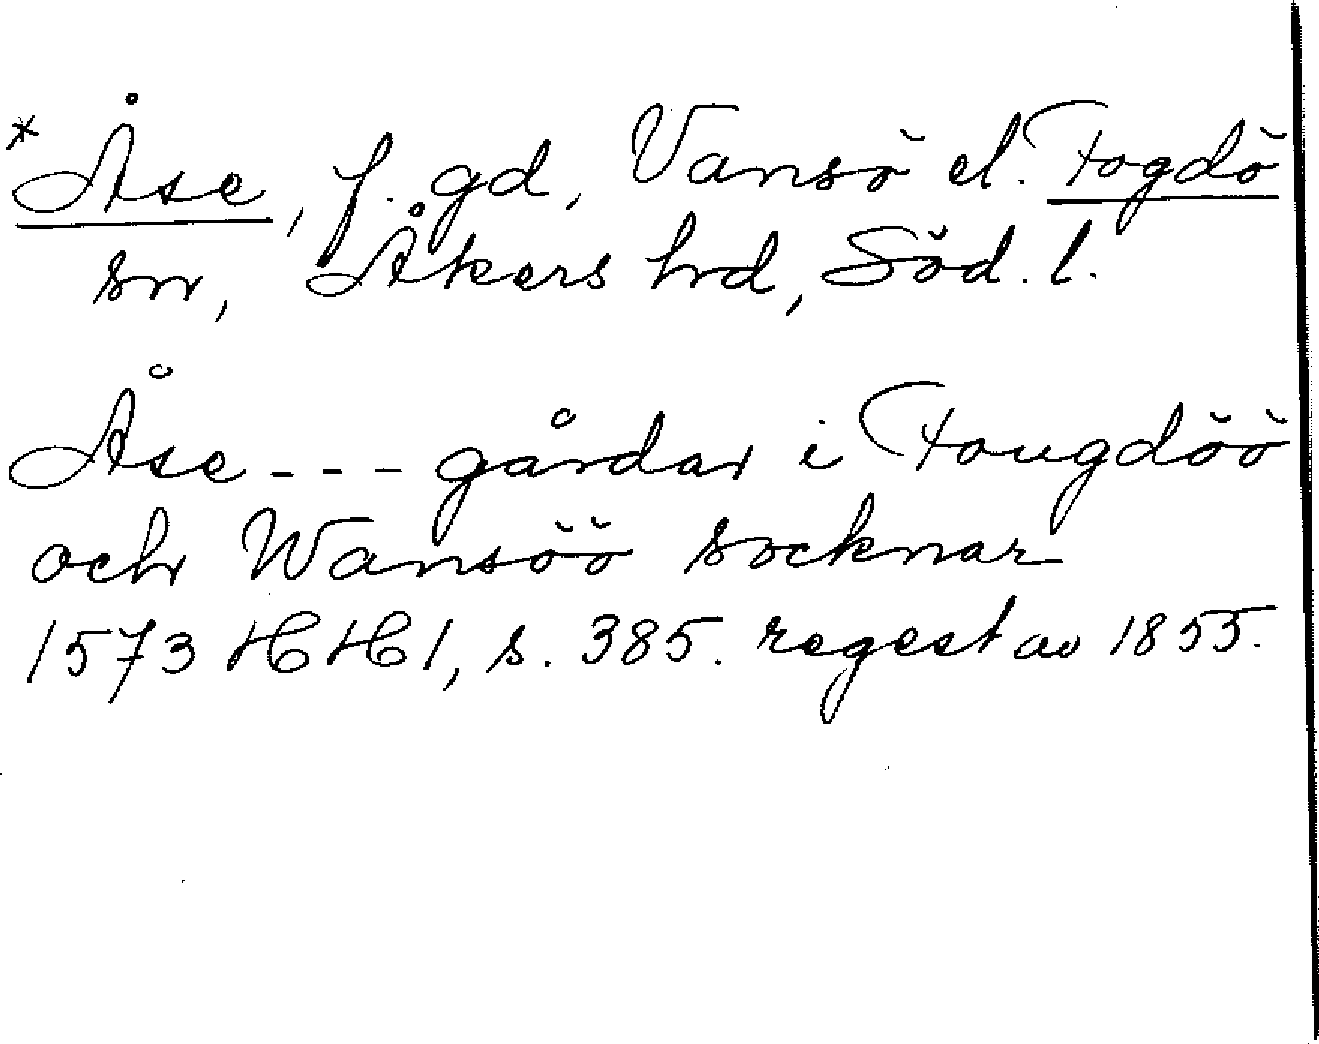 *Åse, f. gd, Vansö el. Fogdö
sn, Åkers hrd, Söd. l.
Åse - - - gårdar i Fougdöö
och Wansöö socknar
1573 HH 1, s. 385. regest av 1855.